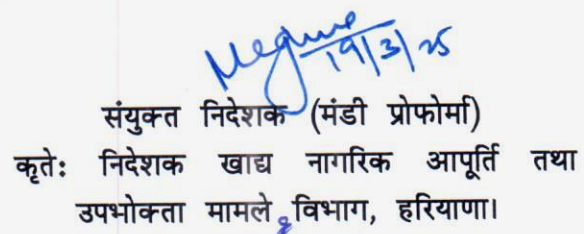 19/3/25
संयुक्त निदेशक (मंडी प्रोफोर्मा)
कृतेः निदेशक खाद्य नागरिक आपूर्ति तथा
उपभोक्ता मामले विभाग, हरियाणा।